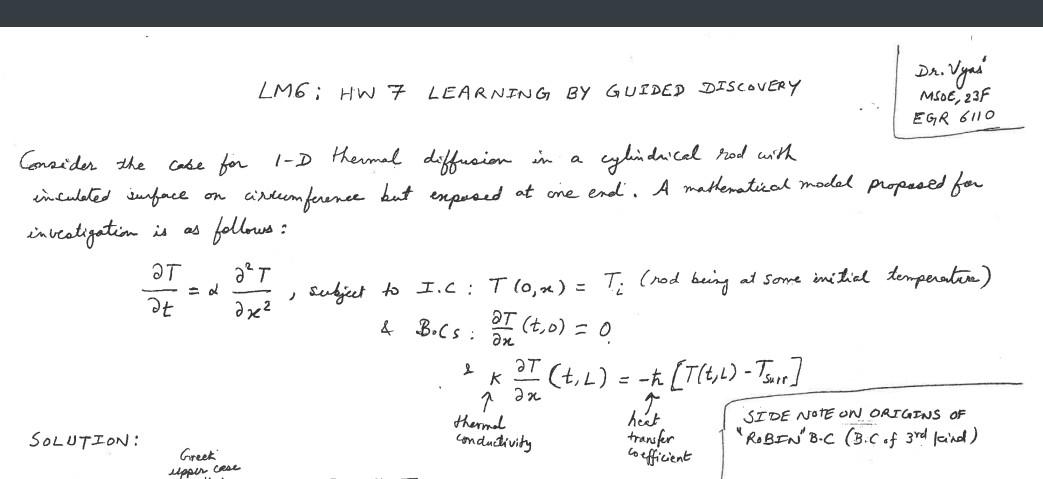 Dr. Vyas
MSOE, 23F
EGR 6110
LM6: HW 7 LEARNING BY GUIDED DISCOVERY
Consider the case for 1-D thermal diffusion in a cylindrical rod with
insulated surface on circumference but exposed at one end. A mathematical model proposed for
investigation is as follows:
∂T/∂t = α ∂²T/∂x² , subject to I.C: T(0,x) = Tᵢ (rod being at some initial temperature)
& B.Cs: ∂T/∂x (t,0) = 0
& K ∂T/∂x (t,L) = -h [T(t,L) - Tsurr]
thermal conductivity
heat transfer coefficient
SIDE NOTE ON ORIGINS OF
"ROBIN" B.C (B.C of 3rd kind)
SOLUTION:
Greek
upper case